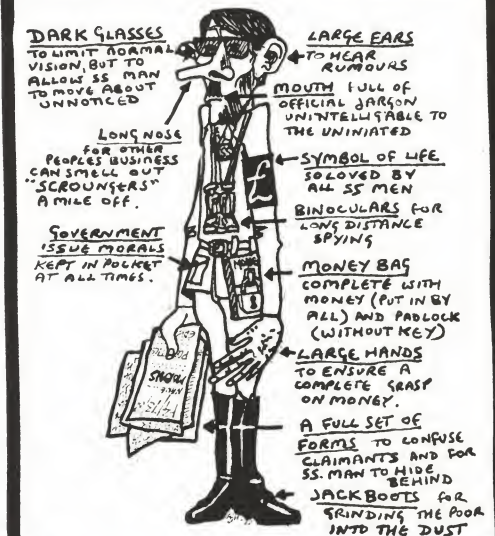 DARK GLASSES
TO LIMIT NORMAL
VISION, BUT TO
ALLOW SS MAN
TO MOVE ABOUT
UNNOTICED
LONG NOSE
FOR OTHER
PEOPLES BUSINESS
CAN SMELL OUT
"SCROUNGERS"
A MILE OFF.
GOVERNMENT
ISSUE MORALS
KEPT IN POCKET
AT ALL TIMES.
LARGE EARS
TO HEAR
RUMOURS
MOUTH FULL OF
OFFICIAL JARGON
UNINTELLIGABLE TO
THE UNINIATED
SYMBOL OF LIFE
SOLOVED BY
ALL SS MEN
£
BINOCULARS FOR
LONG DISTANCE
SPYING
MONEY BAG
COMPLETE WITH
MONEY (PUT IN BY
ALL) AND PADLOCK
(WITHOUT KEY)
LARGE HANDS
TO ENSURE A
COMPLETE GRASP
ON MONEY.
A FULL SET OF
FORMS TO CONFUSE
CLAIMANTS AND FOR
SS. MAN TO HIDE
BEHIND
JACK BOOTS FOR
GRINDING THE POOR
INTO THE DUST